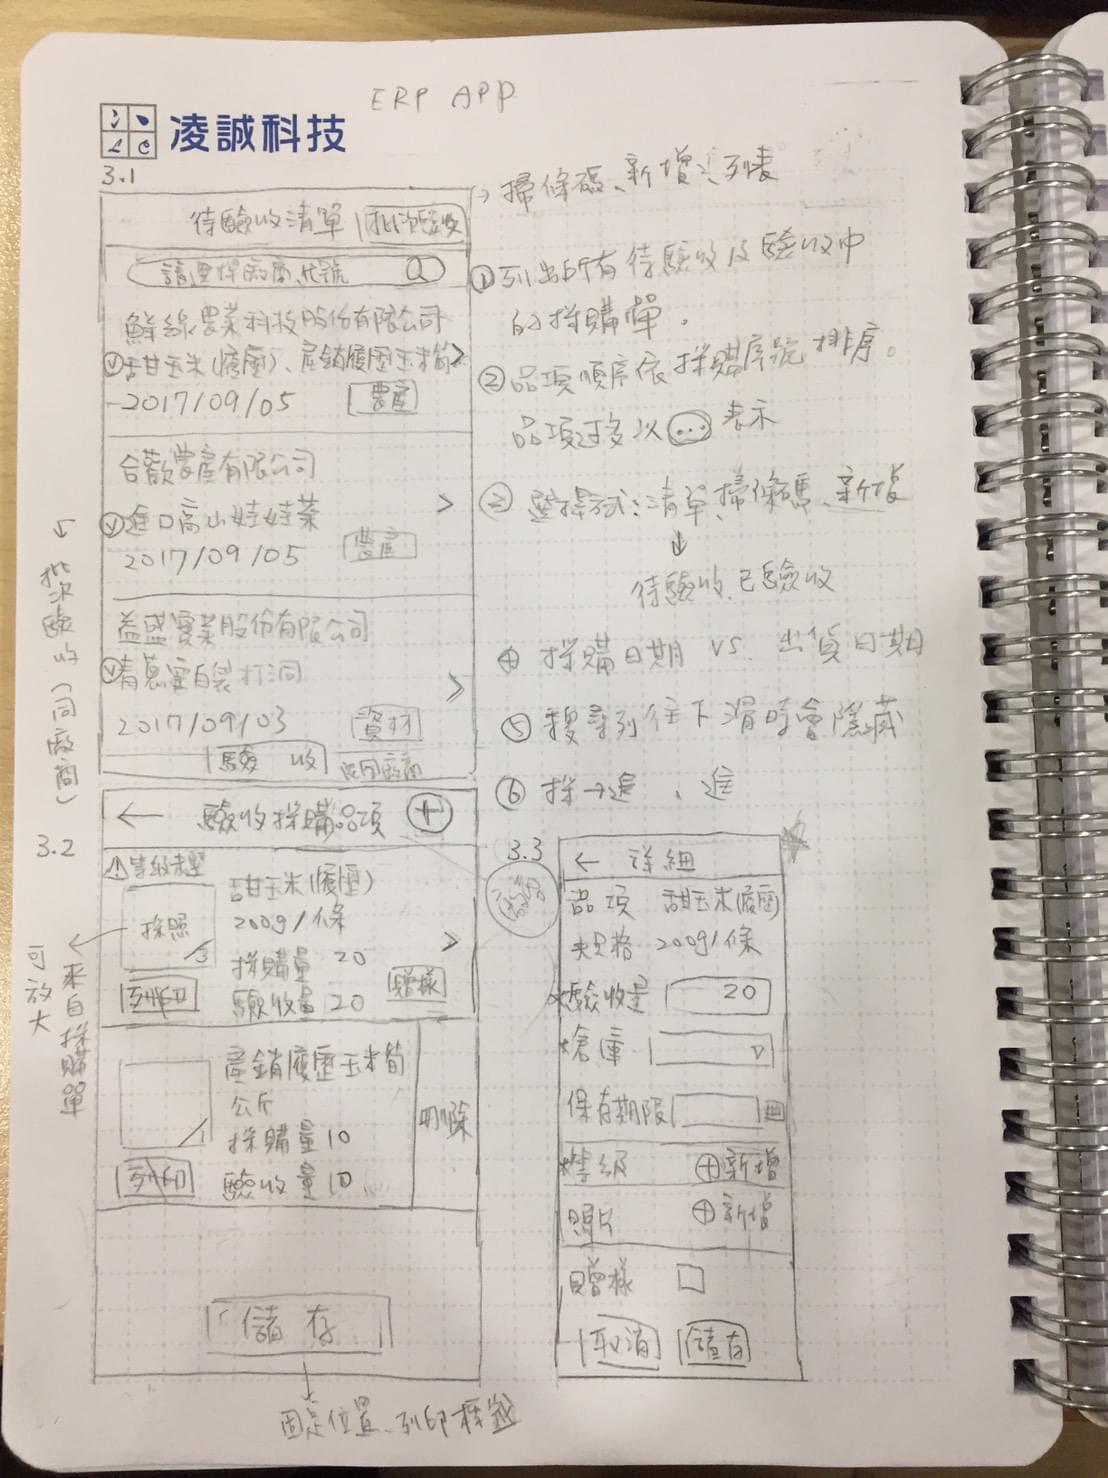 ERP APP
凌誠科技
3.1
待驗收清單 批次驗收
請選擇廠商、代號
鮮綠農業科技股份有限公司
甜玉米(履歷)、產銷履歷玉米筍 >
2017/09/05 農產
合歡農產有限公司
進口高山娃娃菜 >
2017/09/05 農產
益盛實業股份有限公司
青蔥蛋白袋打洞 >
2017/09/03 資材
驗 收
批次驗收(同廠商)
→ 掃條碼、新增、列表
① 列出所有待驗收及驗收中
的採購單。
② 品項順序依採購序號排序。
品項過多以 ... 表示
③ 選擇式:清單、掃條碼、新增
↓
待驗收、已驗收
④ 採購日期 VS. 出貨日期
⑤ 搜尋列往下滑時會隱藏
⑥ 採→進、進
3.2
← 驗收採購品項 +
! 等級未望
採照 3
甜玉米(履歷)
200g/條
採購量 20
驗收量 20
列印
贈樣
>
可放大
來自採購單
1
產銷履歷玉米筍
公斤
採購量 10
驗收量 10
列印
刪除
儲存
固定位置、列印標籤
3.3
← 詳細
品項 甜玉米(履歷)
規格 200g/條
*驗收量 20
*倉庫
保存期限
*等級 +新增
照片 +新增
贈樣 □
取消 儲存